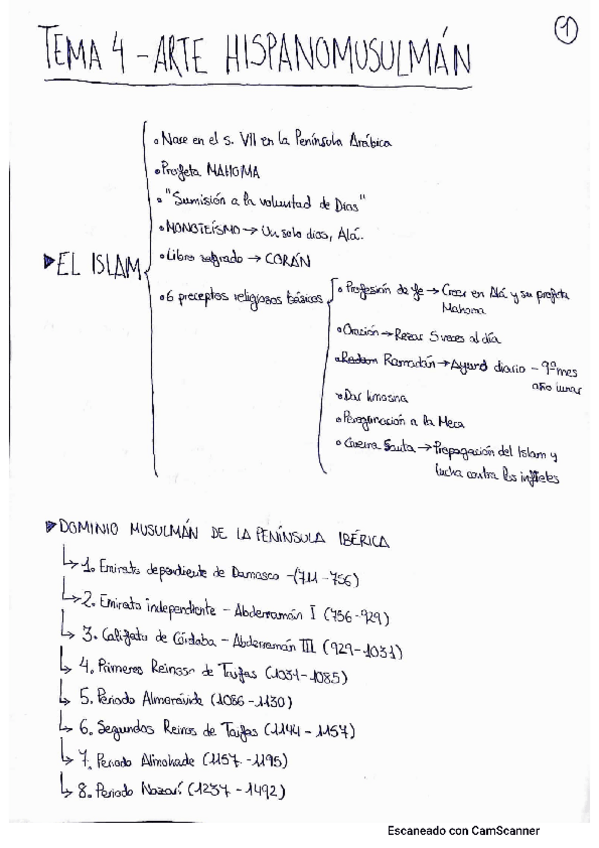 1
TEMA 4 - ARTE HISPANOMUSULMÁN
▶EL ISLAM
• Nace en el s. VII en la Península Arábica
• Profeta MAHOMA
• "Sumisión a la voluntad de Dios"
• MONOTEÍSMO → Un solo dios, Alá.
• Libro sagrado → CORÁN
• 6 preceptos religiosos básicos
• Profesión de fe → Creer en Alá y su profeta
Mahoma
• Oración → Rezar 5 veces al día
• Ramadán → Ayuno diario - 9º mes
año lunar
• Dar limosna
• Peregrinación a la Meca
• Guerra Santa → Propagación del Islam y
lucha contra los infieles
▶DOMINIO MUSULMÁN DE LA PENÍNSULA IBÉRICA
↳ 1. Emirato dependiente de Damasco - (711 - 756)
↳ 2. Emirato independiente - Abderramán I (756 - 929)
↳ 3. Califato de Córdoba - Abderramán III (929 - 1031)
↳ 4. Primeros Reinos de Taifas (1031 - 1085)
↳ 5. Periodo Almorávide (1086 - 1130)
↳ 6. Segundos Reinos de Taifas (1144 - 1157)
↳ 7. Periodo Almohade (1157 - 1195)
↳ 8. Periodo Nazarí (1237 - 1492)
Escaneado con CamScanner